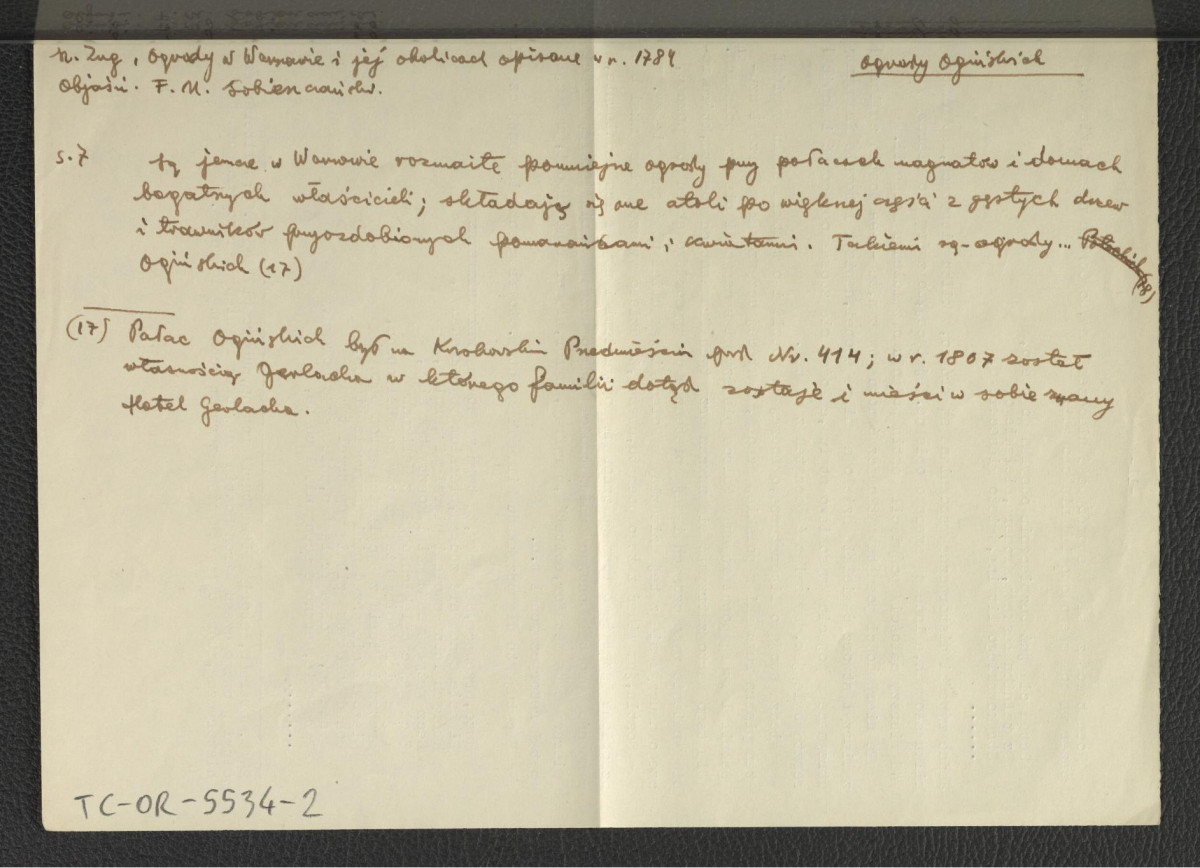 Sz. Zug, Ogrody w Warszawie i jej okolicach opisane w r. 1784
ogrody Ogińskich
Objaśn. F. M. Sobieszczański.
s. 7 Są jeszcze w Warszawie rozmaite pomniejsze ogrody przy pałacach magnatów i domach
bogatszych właścicieli; składają się one atoli po większej części z gęstych drzew
i trawników przyozdobionych pomarańczami i kwiatami. Takiemi są ogrody...
Ogińskich (17)
(18)
(17) Pałac Ogińskich był na Krakowskim Przedmieściu pod Nr. 414; w r. 1807 został
własnością Gerlacha w którego familii dotąd zostaje i mieści w sobie znany
Hotel Gerlacha.
TC-OR-5534-2